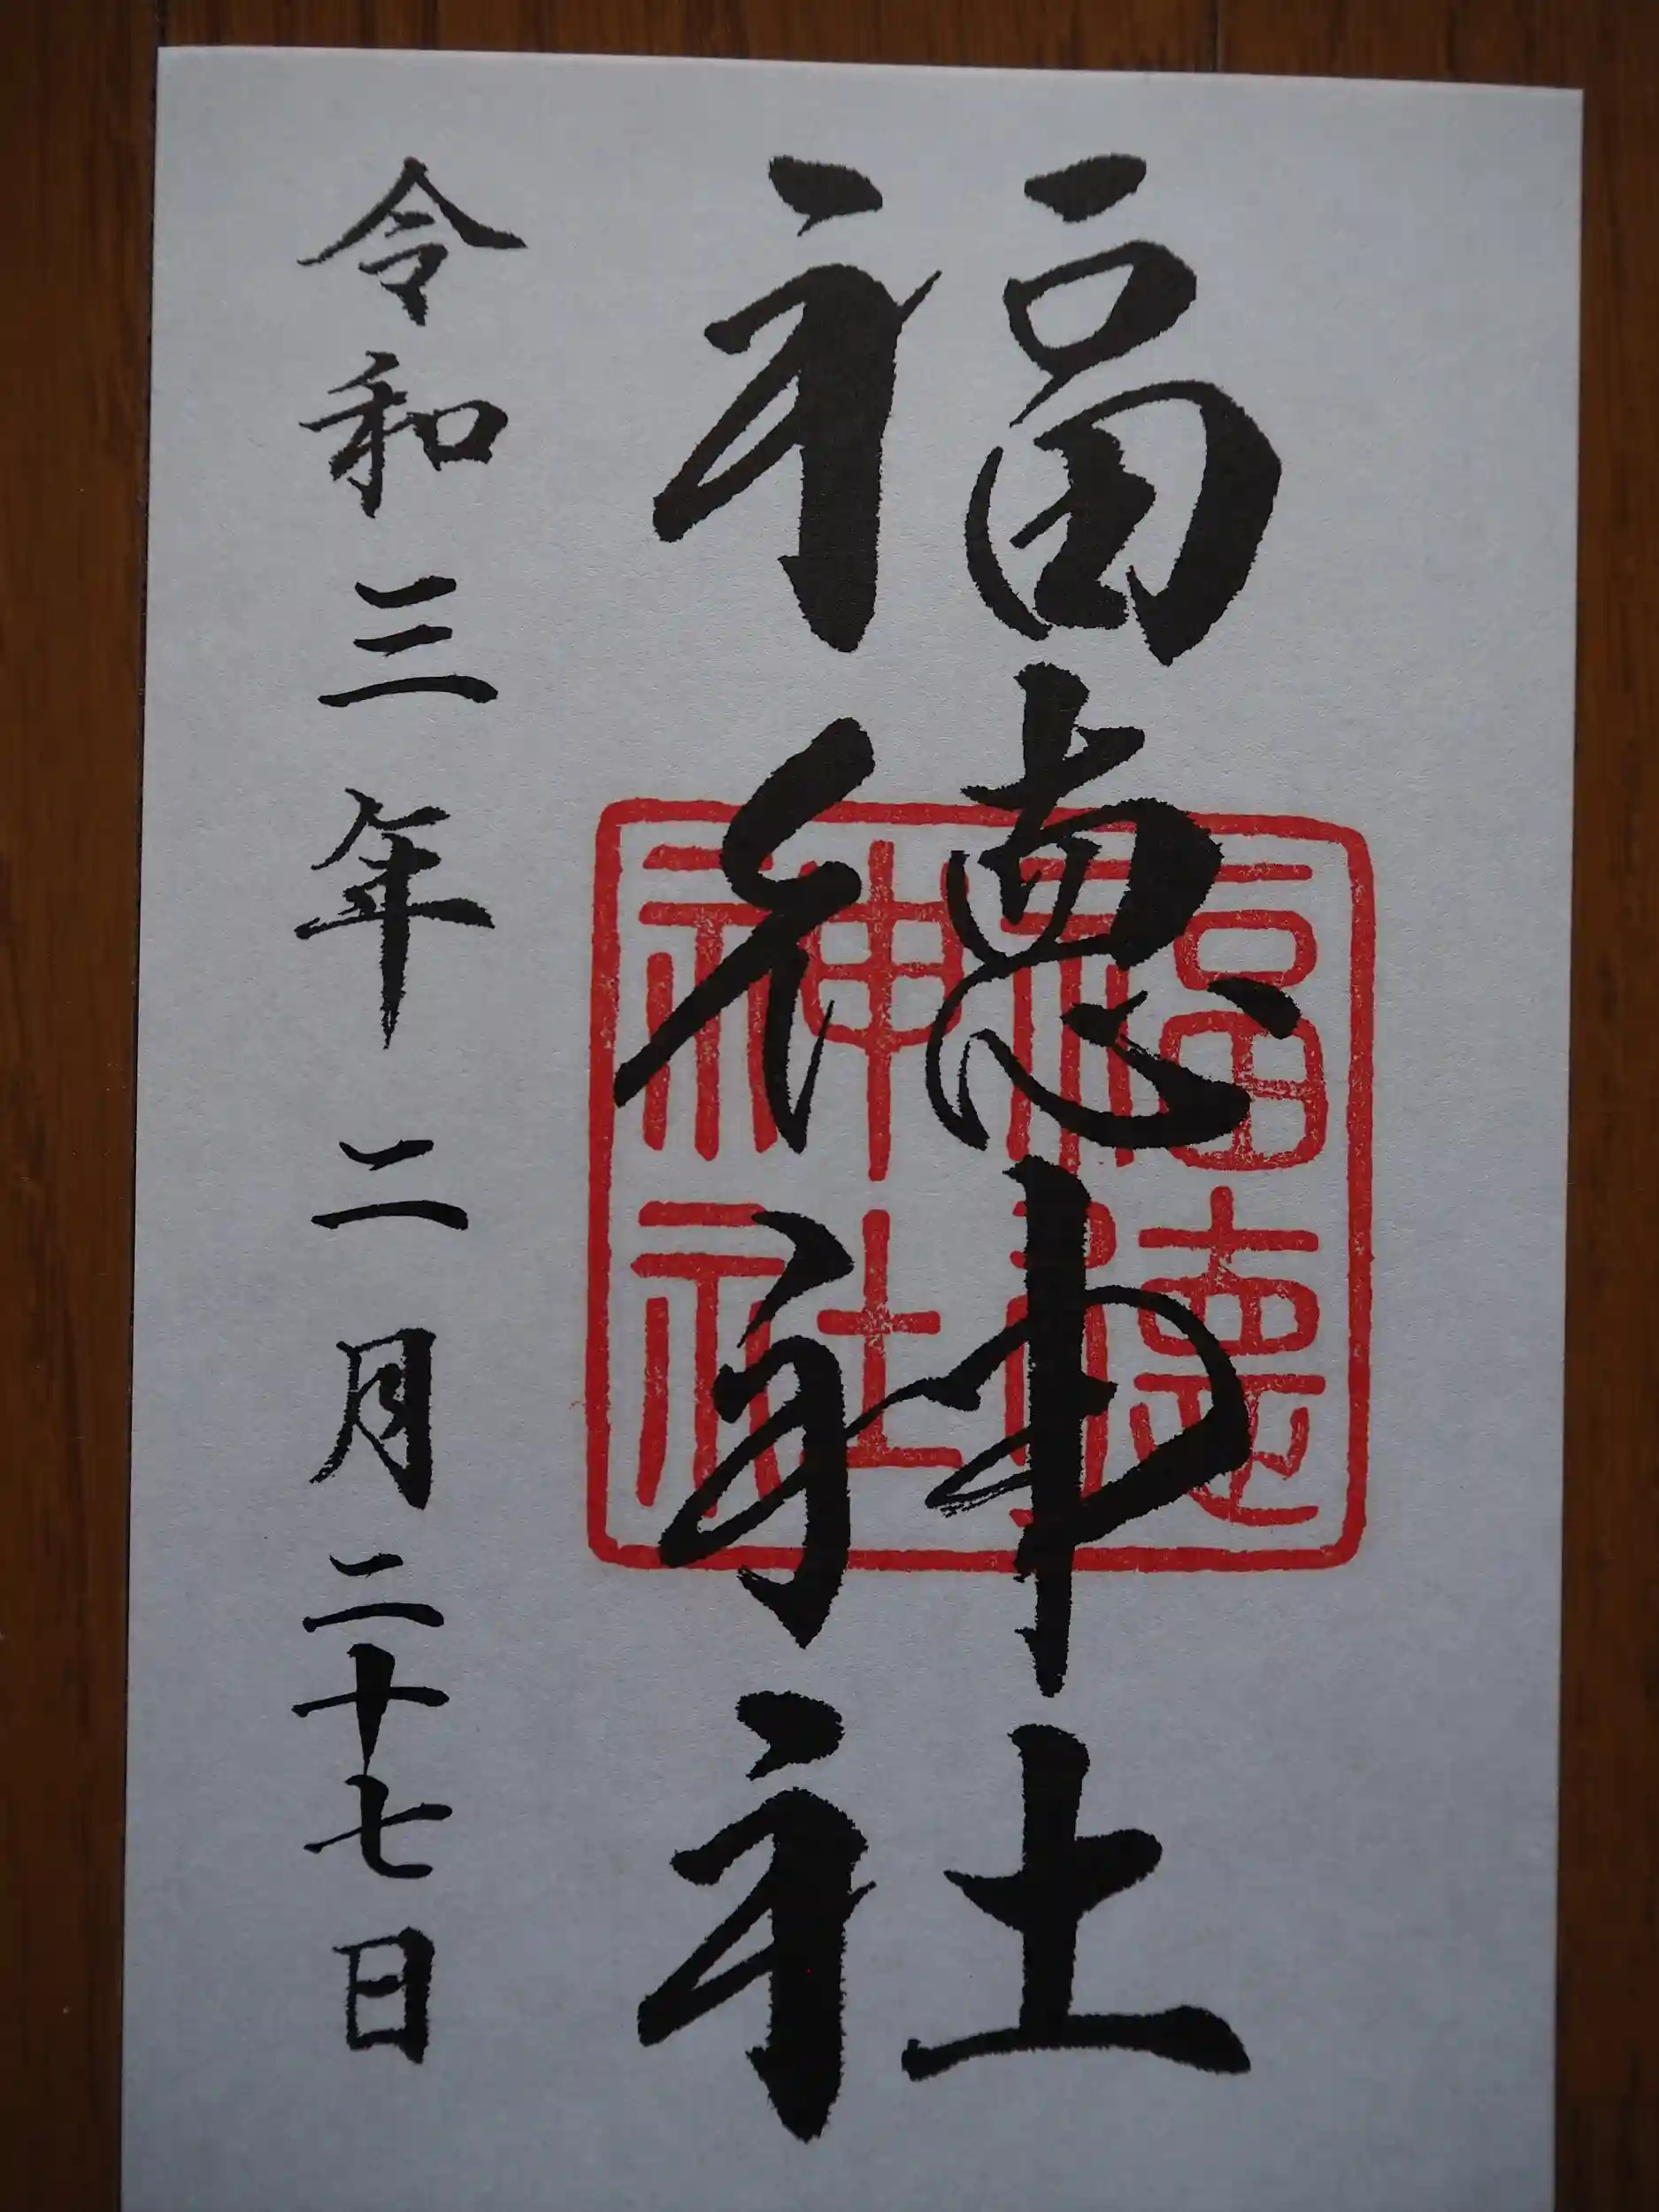 福徳神社
福徳神社
令和三年 二月二十七日